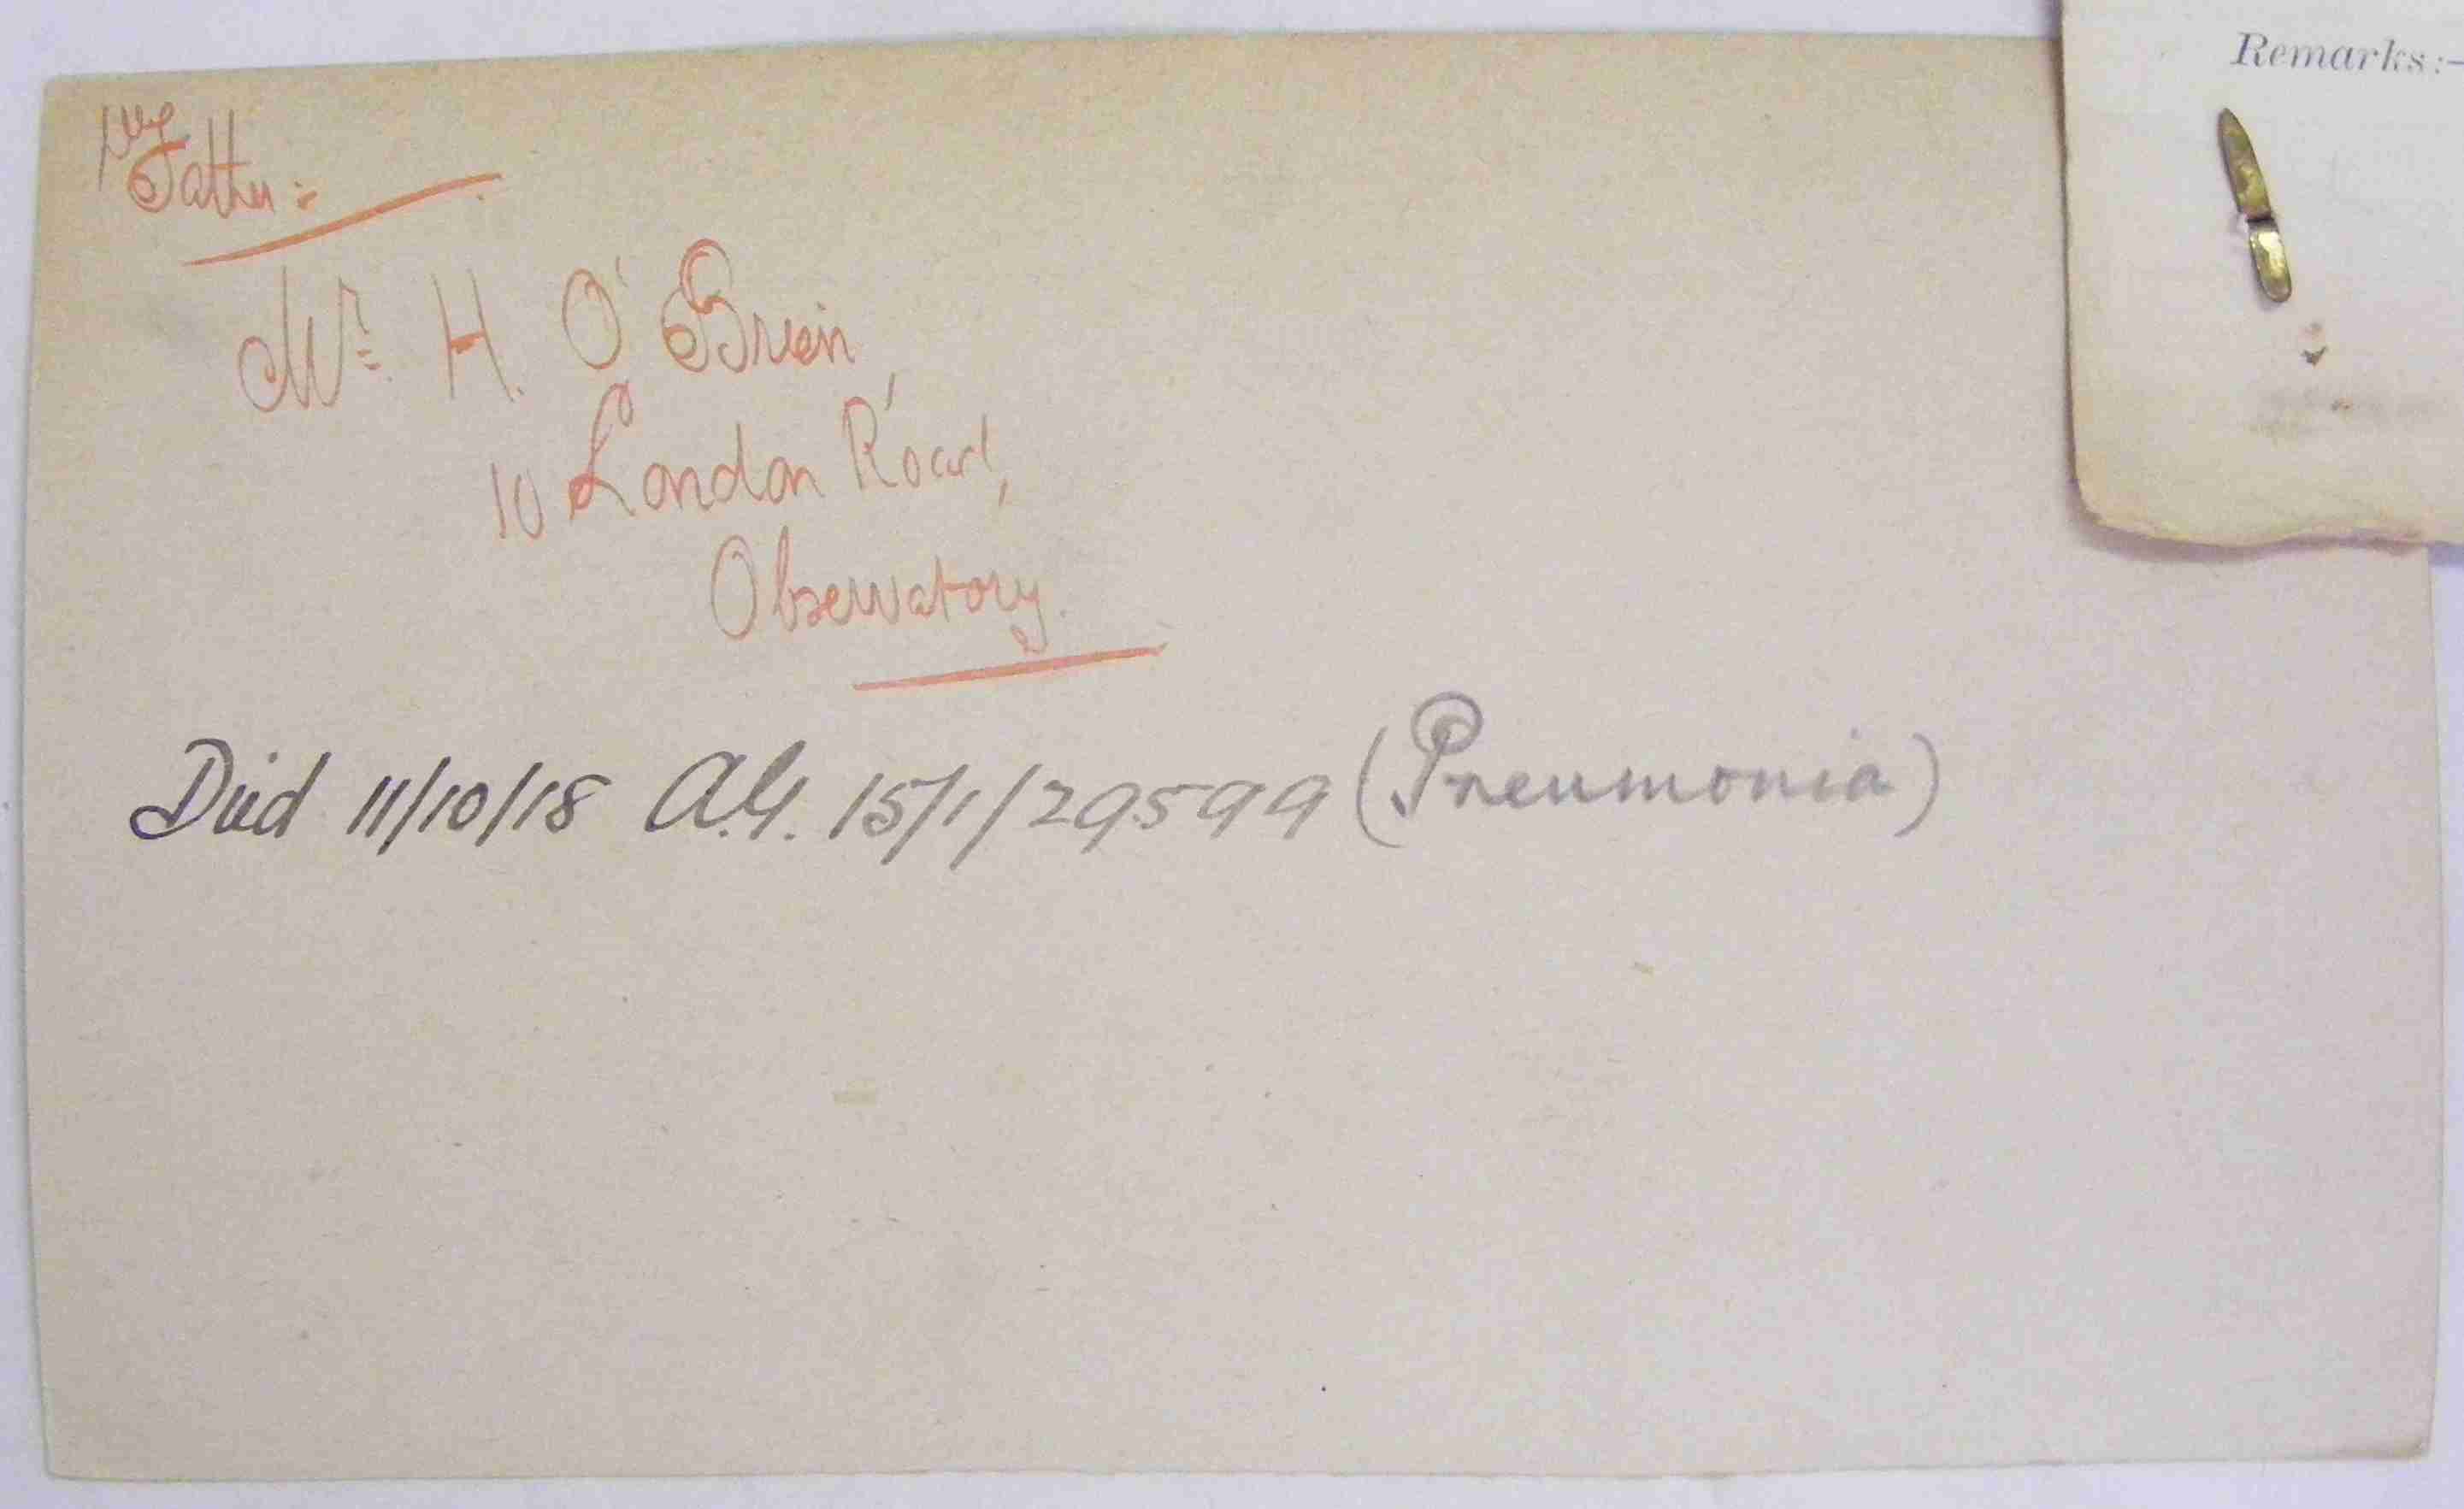 My
Father:-
Mr. H. O'Brien,
10 London Road,
Observatory.
Died 11/10/18 A.G. 15/1/29599 (Pneumonia)
Remarks:-